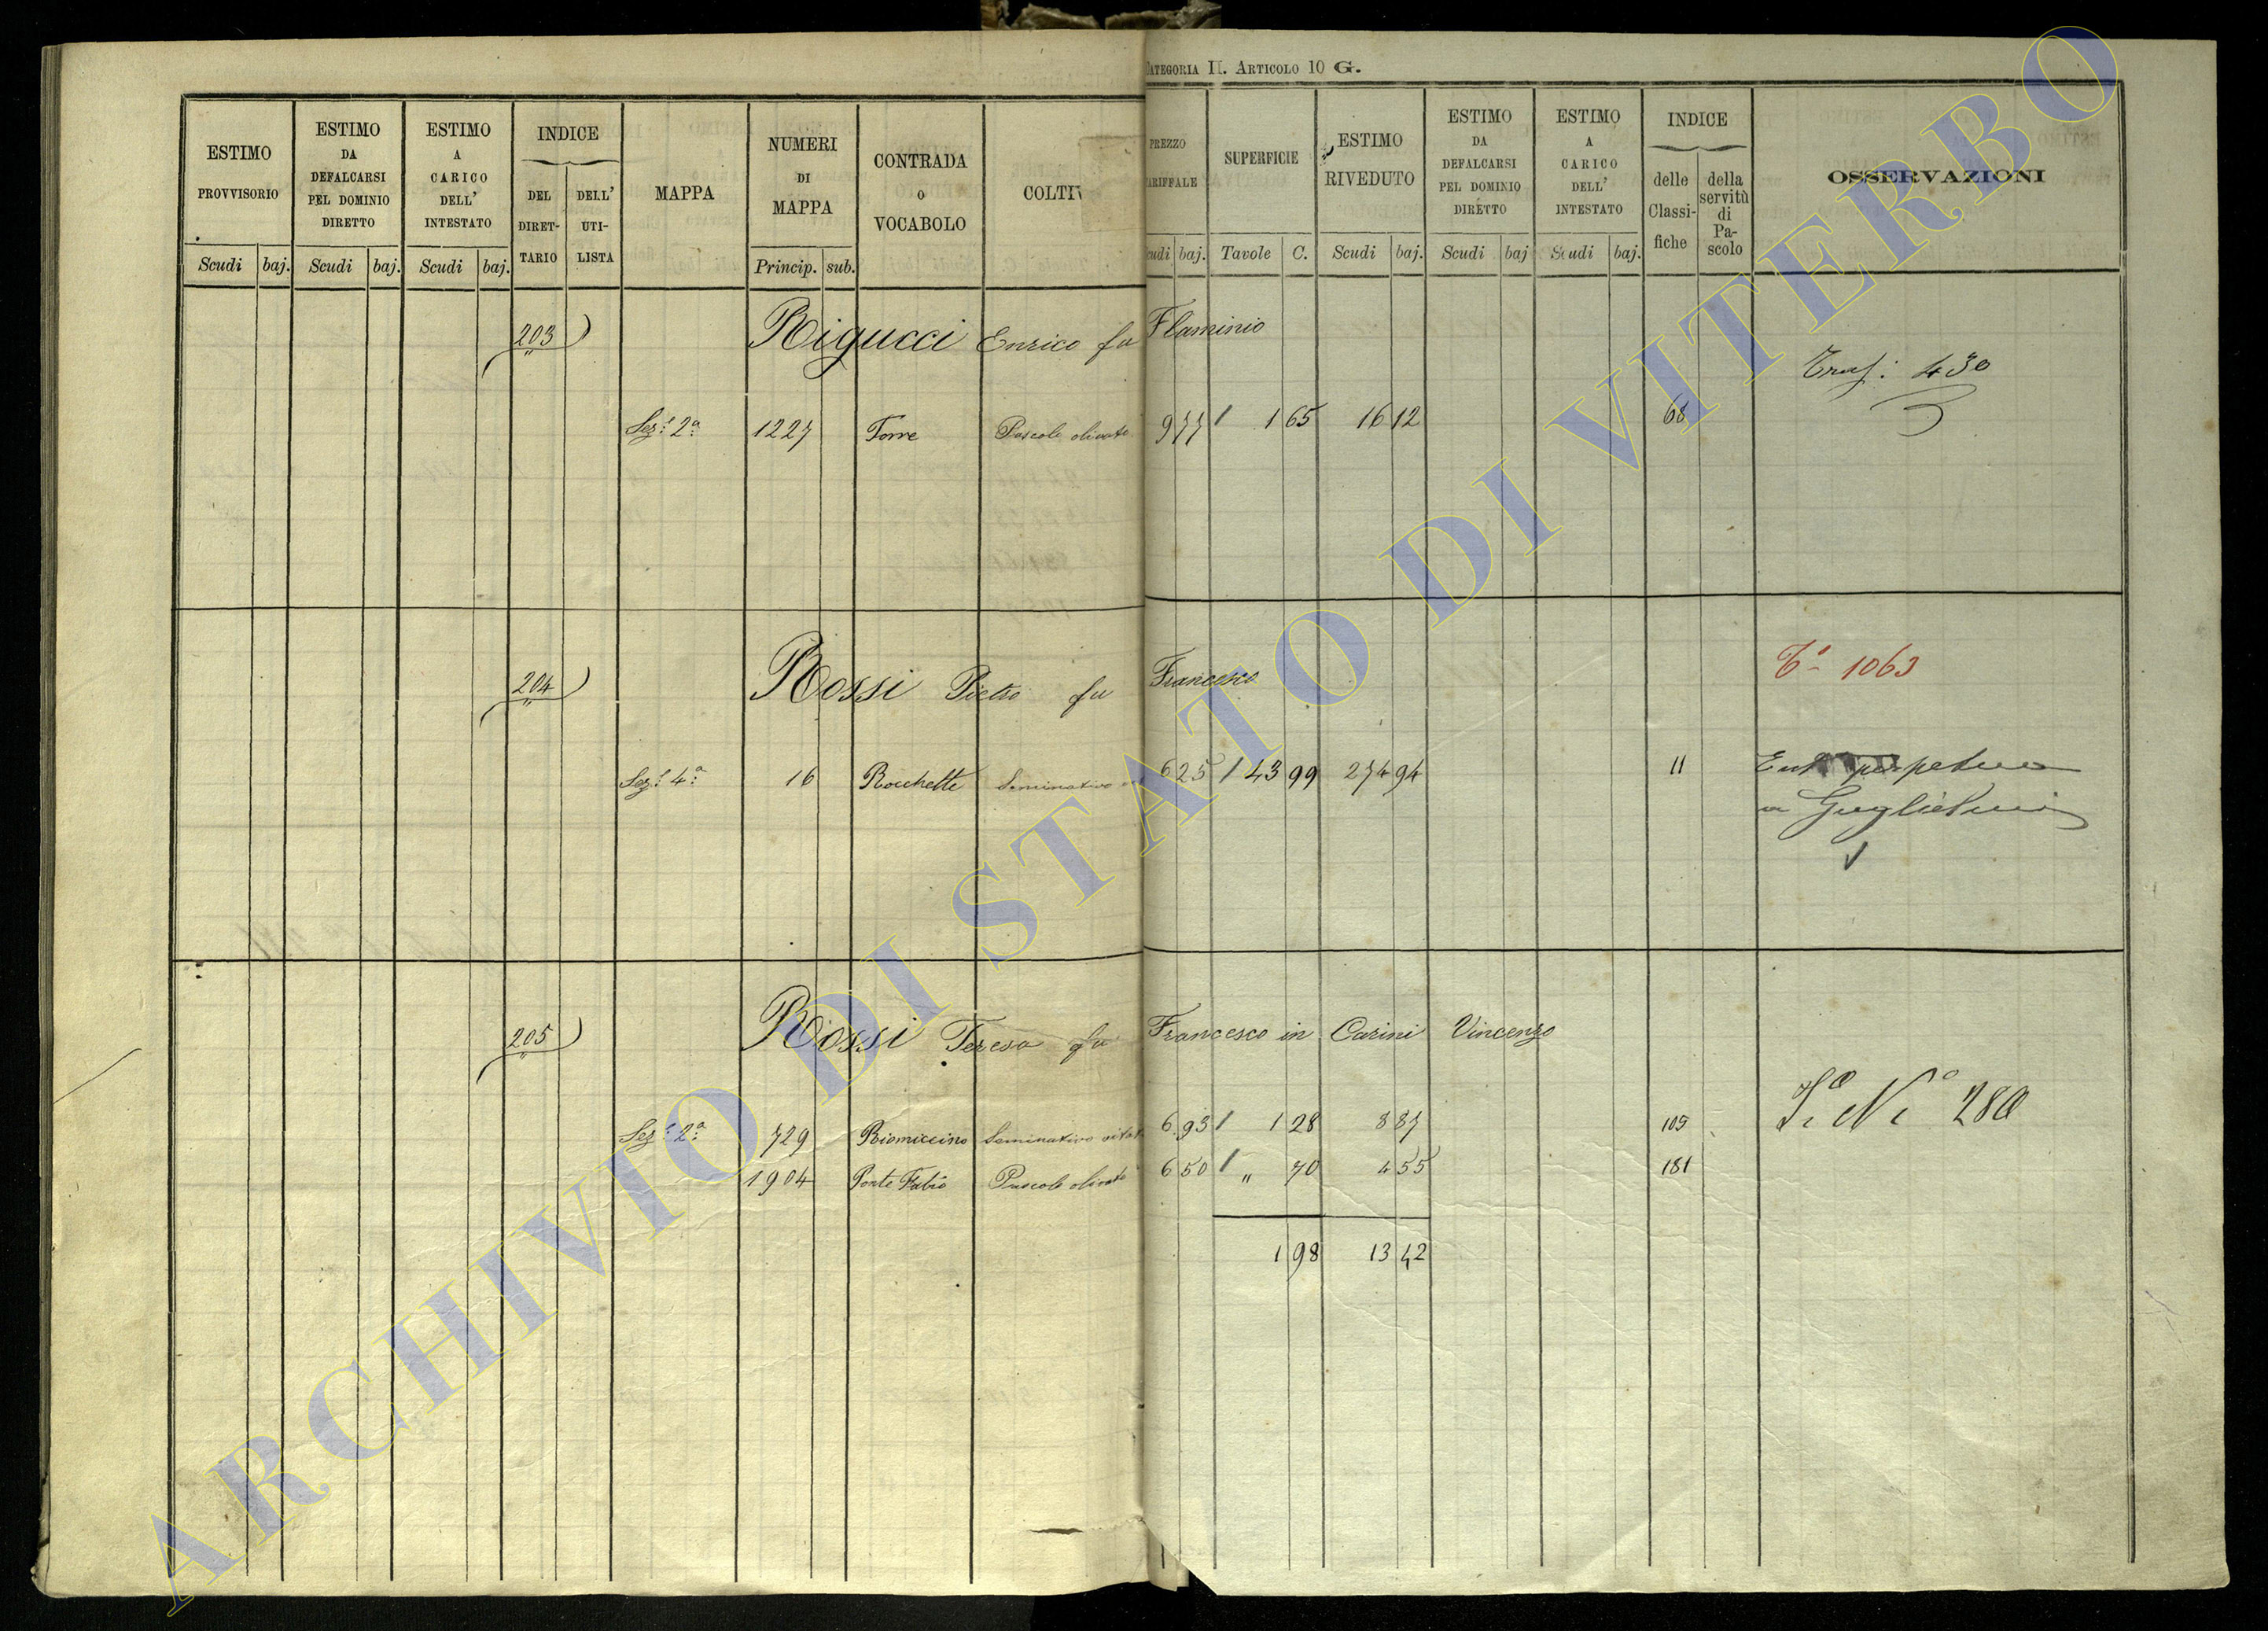 CATEGORIA II. ARTICOLO 10 G.
ESTIMO PROVVISORIO
Scudi baj.
ESTIMO DA DEFALCARSI PEL DOMINIO DIRETTO
Scudi baj.
ESTIMO A CARICO DELL' INTESTATO
Scudi baj.
INDICE
DEL DIRET-TARIO
DELL' UTI-LISTA
MAPPA
NUMERI DI MAPPA
Princip. sub.
CONTRADA o VOCABOLO
COLTIV
PREZZO TARIFFALE
Scudi baj.
SUPERFICIE
Tavole C.
ESTIMO RIVEDUTO
Scudi baj.
ESTIMO DA DEFALCARSI PEL DOMINIO DIRETTO
Scudi baj
ESTIMO A CARICO DELL' INTESTATO
Scudi baj.
INDICE
delle Classi-fiche
della servitù di Pa-scolo
OSSERVAZIONI
203 Rigucci Enrico fu Flaminio
Trasf: 430
Sez: 2a 1227 Torre Pascolo olivato 9 77 1 65 16 12 68
204 Rossi Pietro fu Francesco
1063
Sez: 4a 16 Rocchette Seminativo 6 25 43 99 274 94 11
perpetua
a Guglielmi
205 Rossi Teresa fu Francesco in Carini Vincenzo
No 280
Sez: 2a 729 Riomiccino Seminativo vitato 6 93 1 28 8 87 109
1904 Ponte Fabio Pascolo olivato 6 50 " 70 4 55 181
1 98 13 42
ARCHIVIO DI STATO DI VITERBO